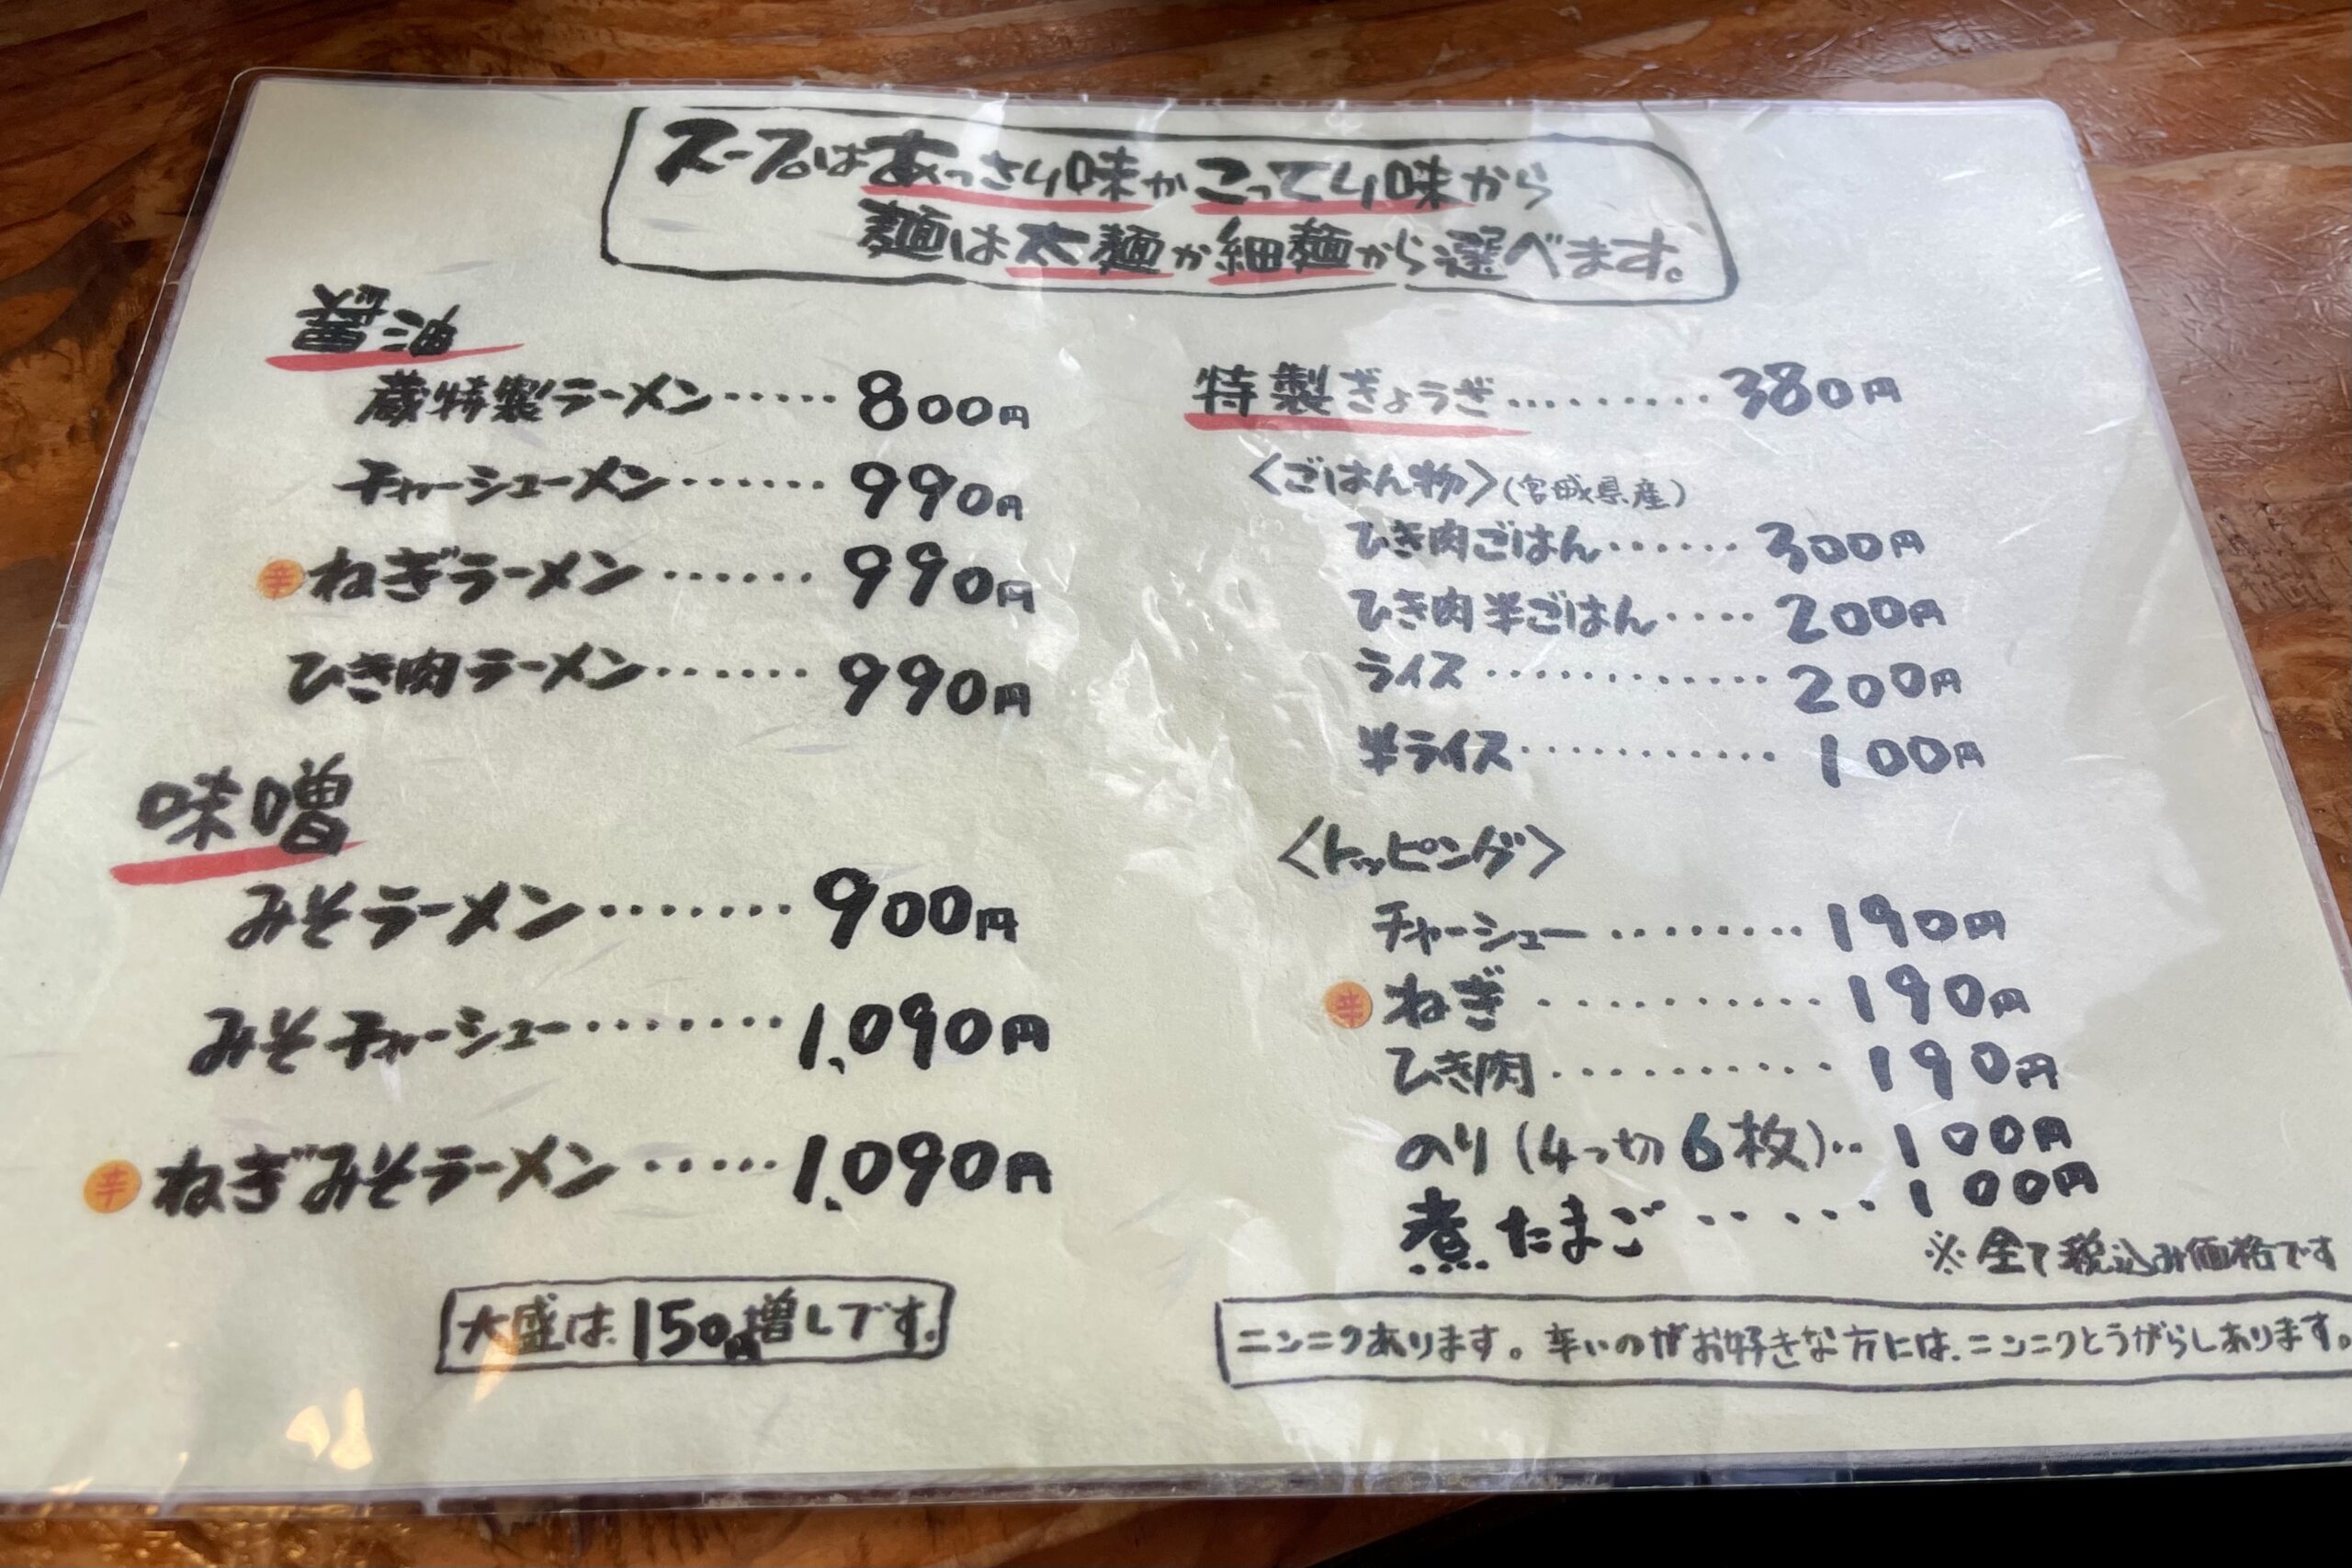 スープはあっさり味かこってり味から
麺は太麺か細麺から選べます。
醤油
蔵特製ラーメン‥‥‥800円
チャーシューメン‥‥‥990円
辛 ねぎラーメン‥‥‥990円
ひき肉ラーメン‥‥‥990円
味噌
みそラーメン‥‥‥‥900円
みそチャーシュー‥‥‥‥1,090円
辛 ねぎみそラーメン‥‥‥1,090円
大盛は150円増しです。
特製ぎょうざ‥‥‥‥‥380円
〈ごはん物〉(宮城県産)
ひき肉ごはん‥‥‥300円
ひき肉半ごはん‥‥200円
ライス‥‥‥‥‥‥200円
半ライス‥‥‥‥‥‥100円
〈トッピング〉
チャーシュー‥‥‥‥190円
辛 ねぎ‥‥‥‥‥190円
ひき肉‥‥‥‥‥190円
のり(4つ切6枚)‥100円
煮たまご‥‥‥100円
※全て税込み価格です
ニンニクあります。辛いのがお好きな方には、ニンニクとうがらしあります。